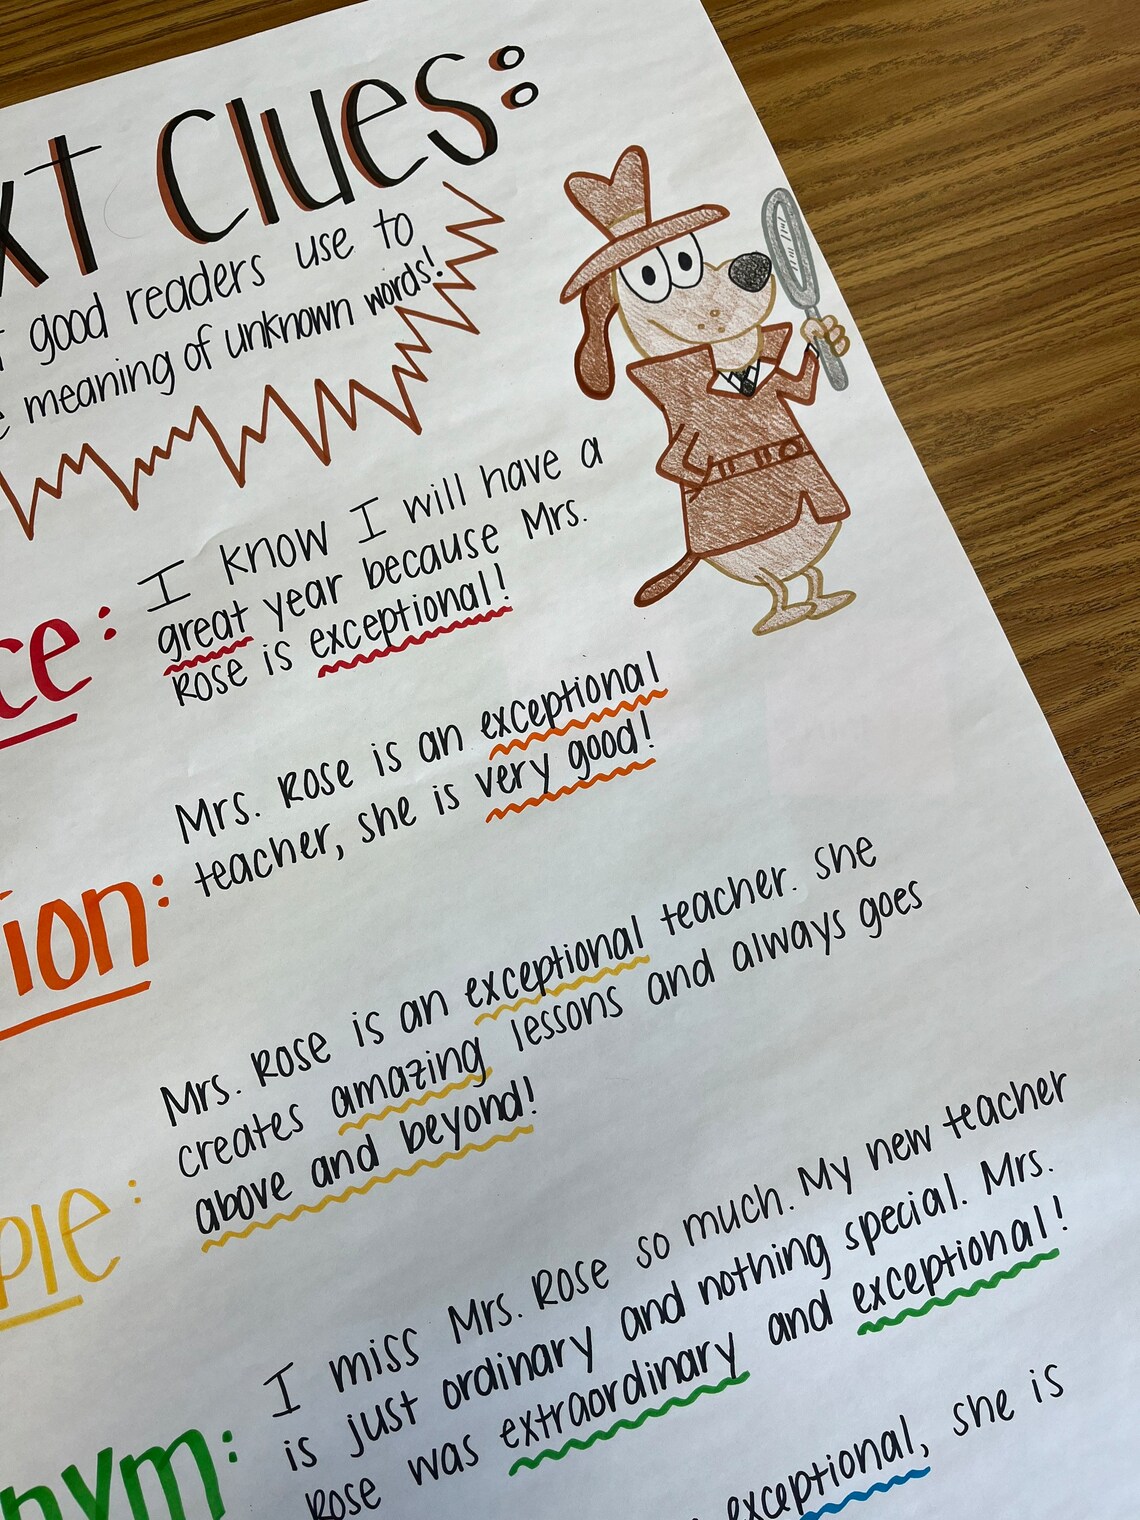 xt Clues:
good readers use to
meaning of unknown words!
ce:
I know I will have a
great year because Mrs.
Rose is exceptional!
tion:
Mrs. Rose is an exceptional
teacher, she is very good!
ple:
Mrs. Rose is an exceptional teacher. She
creates amazing lessons and always goes
above and beyond!
nym:
I miss Mrs. Rose so much. My new teacher
is just ordinary and nothing special. Mrs.
Rose was extraordinary and exceptional!
exceptional, she is